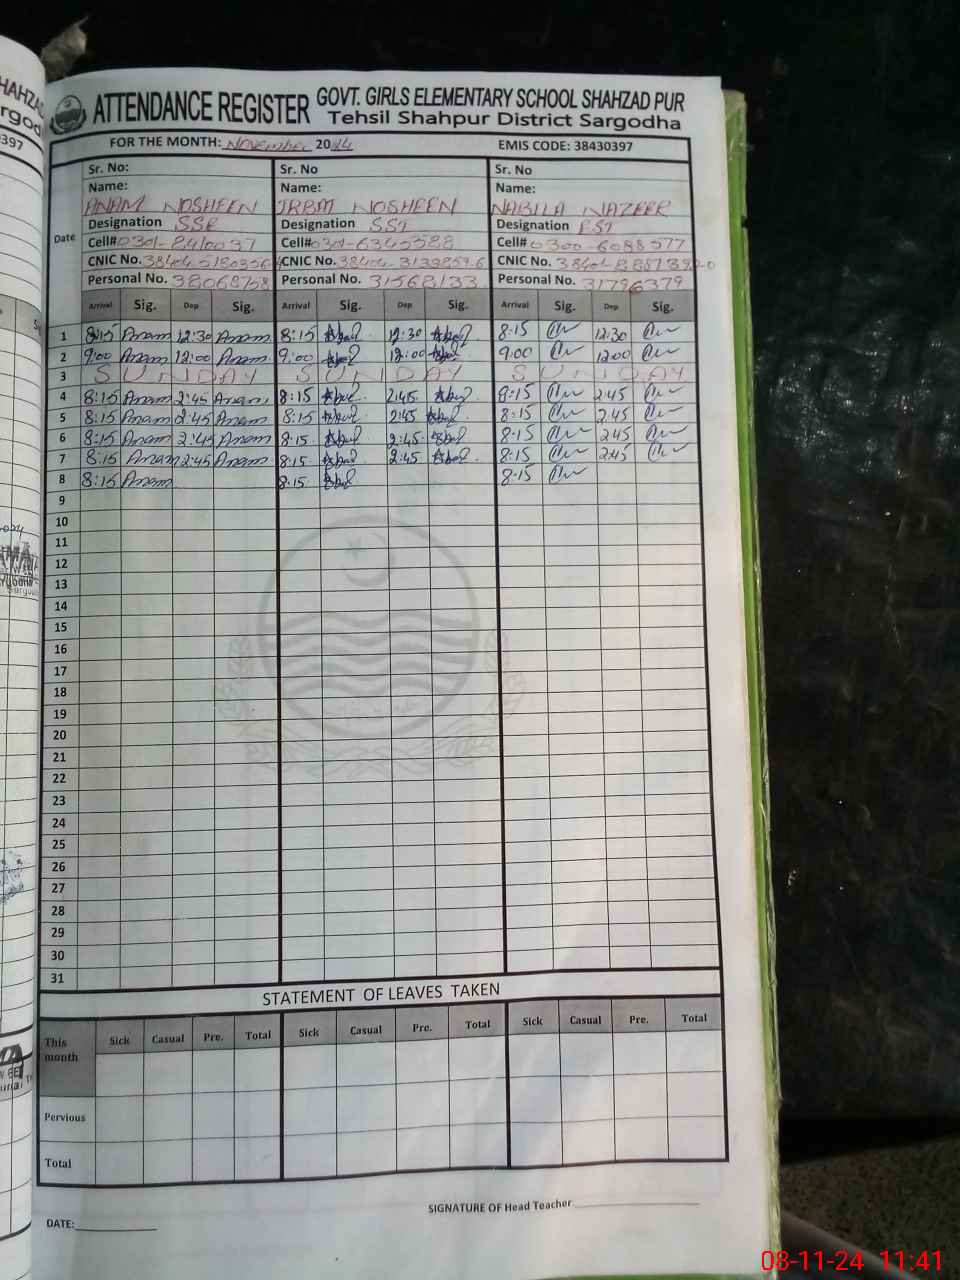 ATTENDANCE REGISTER GOVT. GIRLS ELEMENTARY SCHOOL SHAHZAD PUR
Tehsil Shahpur District Sargodha
FOR THE MONTH: November 2024 EMIS CODE: 38430397
Sr. No: Sr. No Sr. No
Name: Name: Name:
ANAM NOSHEEN IRAM NOSHEEN NABILA NAZEER
Designation SSE Designation SST Designation EST
Date Cell# Cell#0301-6345588 Cell#0300-6088577
CNIC No. CNIC No. CNIC No.
Personal No. 38068758 Personal No. 31568133 Personal No. 31796379
Arrival Sig. Dep Sig. Arrival Sig. Dep Sig. Arrival Sig. Dep Sig.
1 8:15 Anam 12:30 Anam 8:15 12:30 8:15 12:30
2 9:00 Anam 12:00 Anam 9:00 12:00 9:00 12:00
3 SUNDAY SUNDAY SUNDAY
4 8:15 Anam 2:45 Anam 8:15 2:45 8:15 2:45
5 8:15 Anam 2:45 Anam 8:15 2:45 8:15 2:45
6 8:15 Anam 2:45 Anam 8:15 2:45 8:15 2:45
7 8:15 Anam 2:45 Anam 8:15 2:45 8:15 2:45
8 8:15 Anam 8:15 8:15
9
10
11
12
13
14
15
16
17
18
19
20
21
22
23
24
25
26
27
28
29
30
31
STATEMENT OF LEAVES TAKEN
This month Sick Casual Pre. Total Sick Casual Pre. Total Sick Casual Pre. Total
Pervious
Total
SIGNATURE OF Head Teacher:
DATE:
08-11-24 11:41